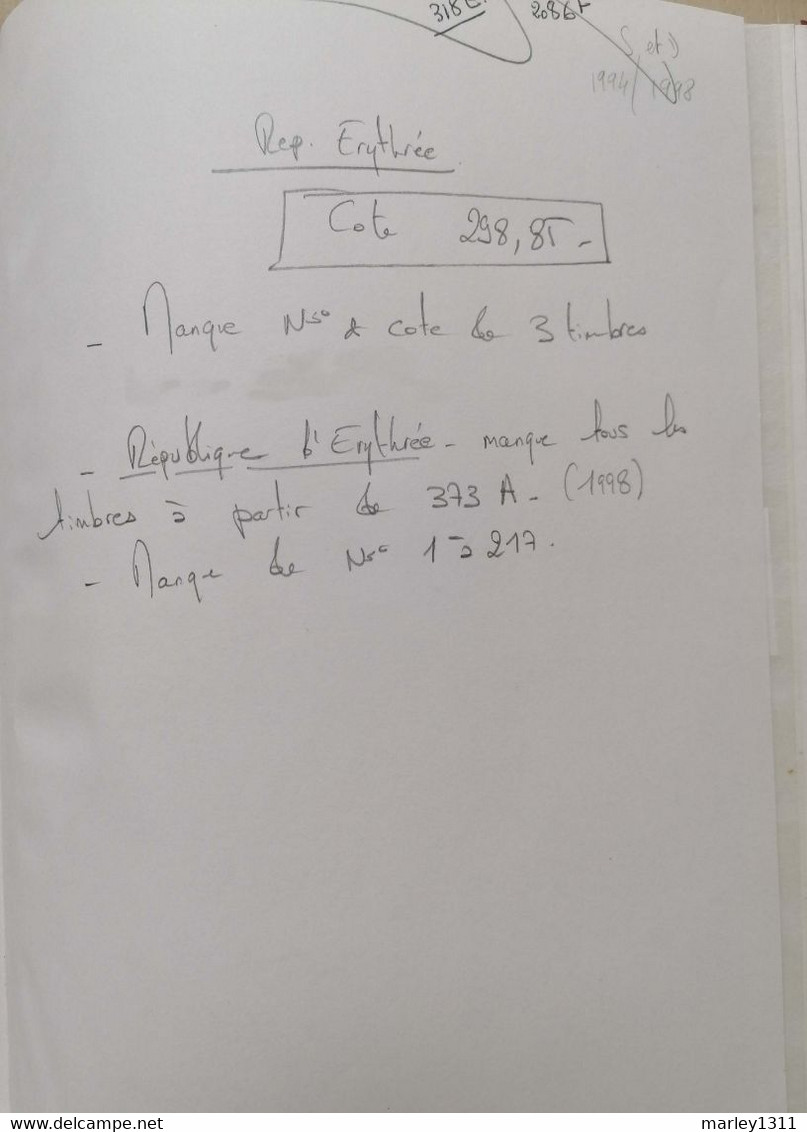 318 2086
S et D
1994/1998
Rep. Erythrée
Cote 298,85 -
- Manque Nso & cote de 3 timbres
- République d'Erythrée - manque tous les
timbres à partir de 373 A - (1998)
- Manque de Nso 1 à 217.
www.delcampe.net marley1311